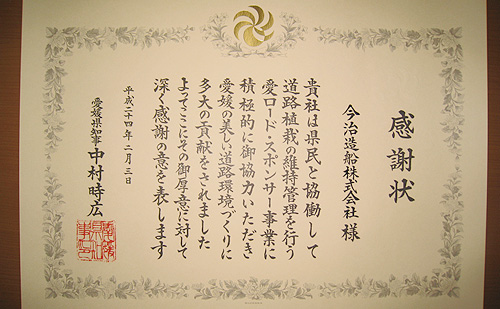 感謝状
今治造船株式会社 様
貴社は県民と協働して
道路植栽の維持管理を行う
愛ロード・スポンサー事業に
積極的に御協力いただき
愛媛の美しい道路環境づくりに
多大の貢献をされました
よってここにその御厚意に対して
深く感謝の意を表します
平成二十四年二月三日
愛媛県知事 中村時広